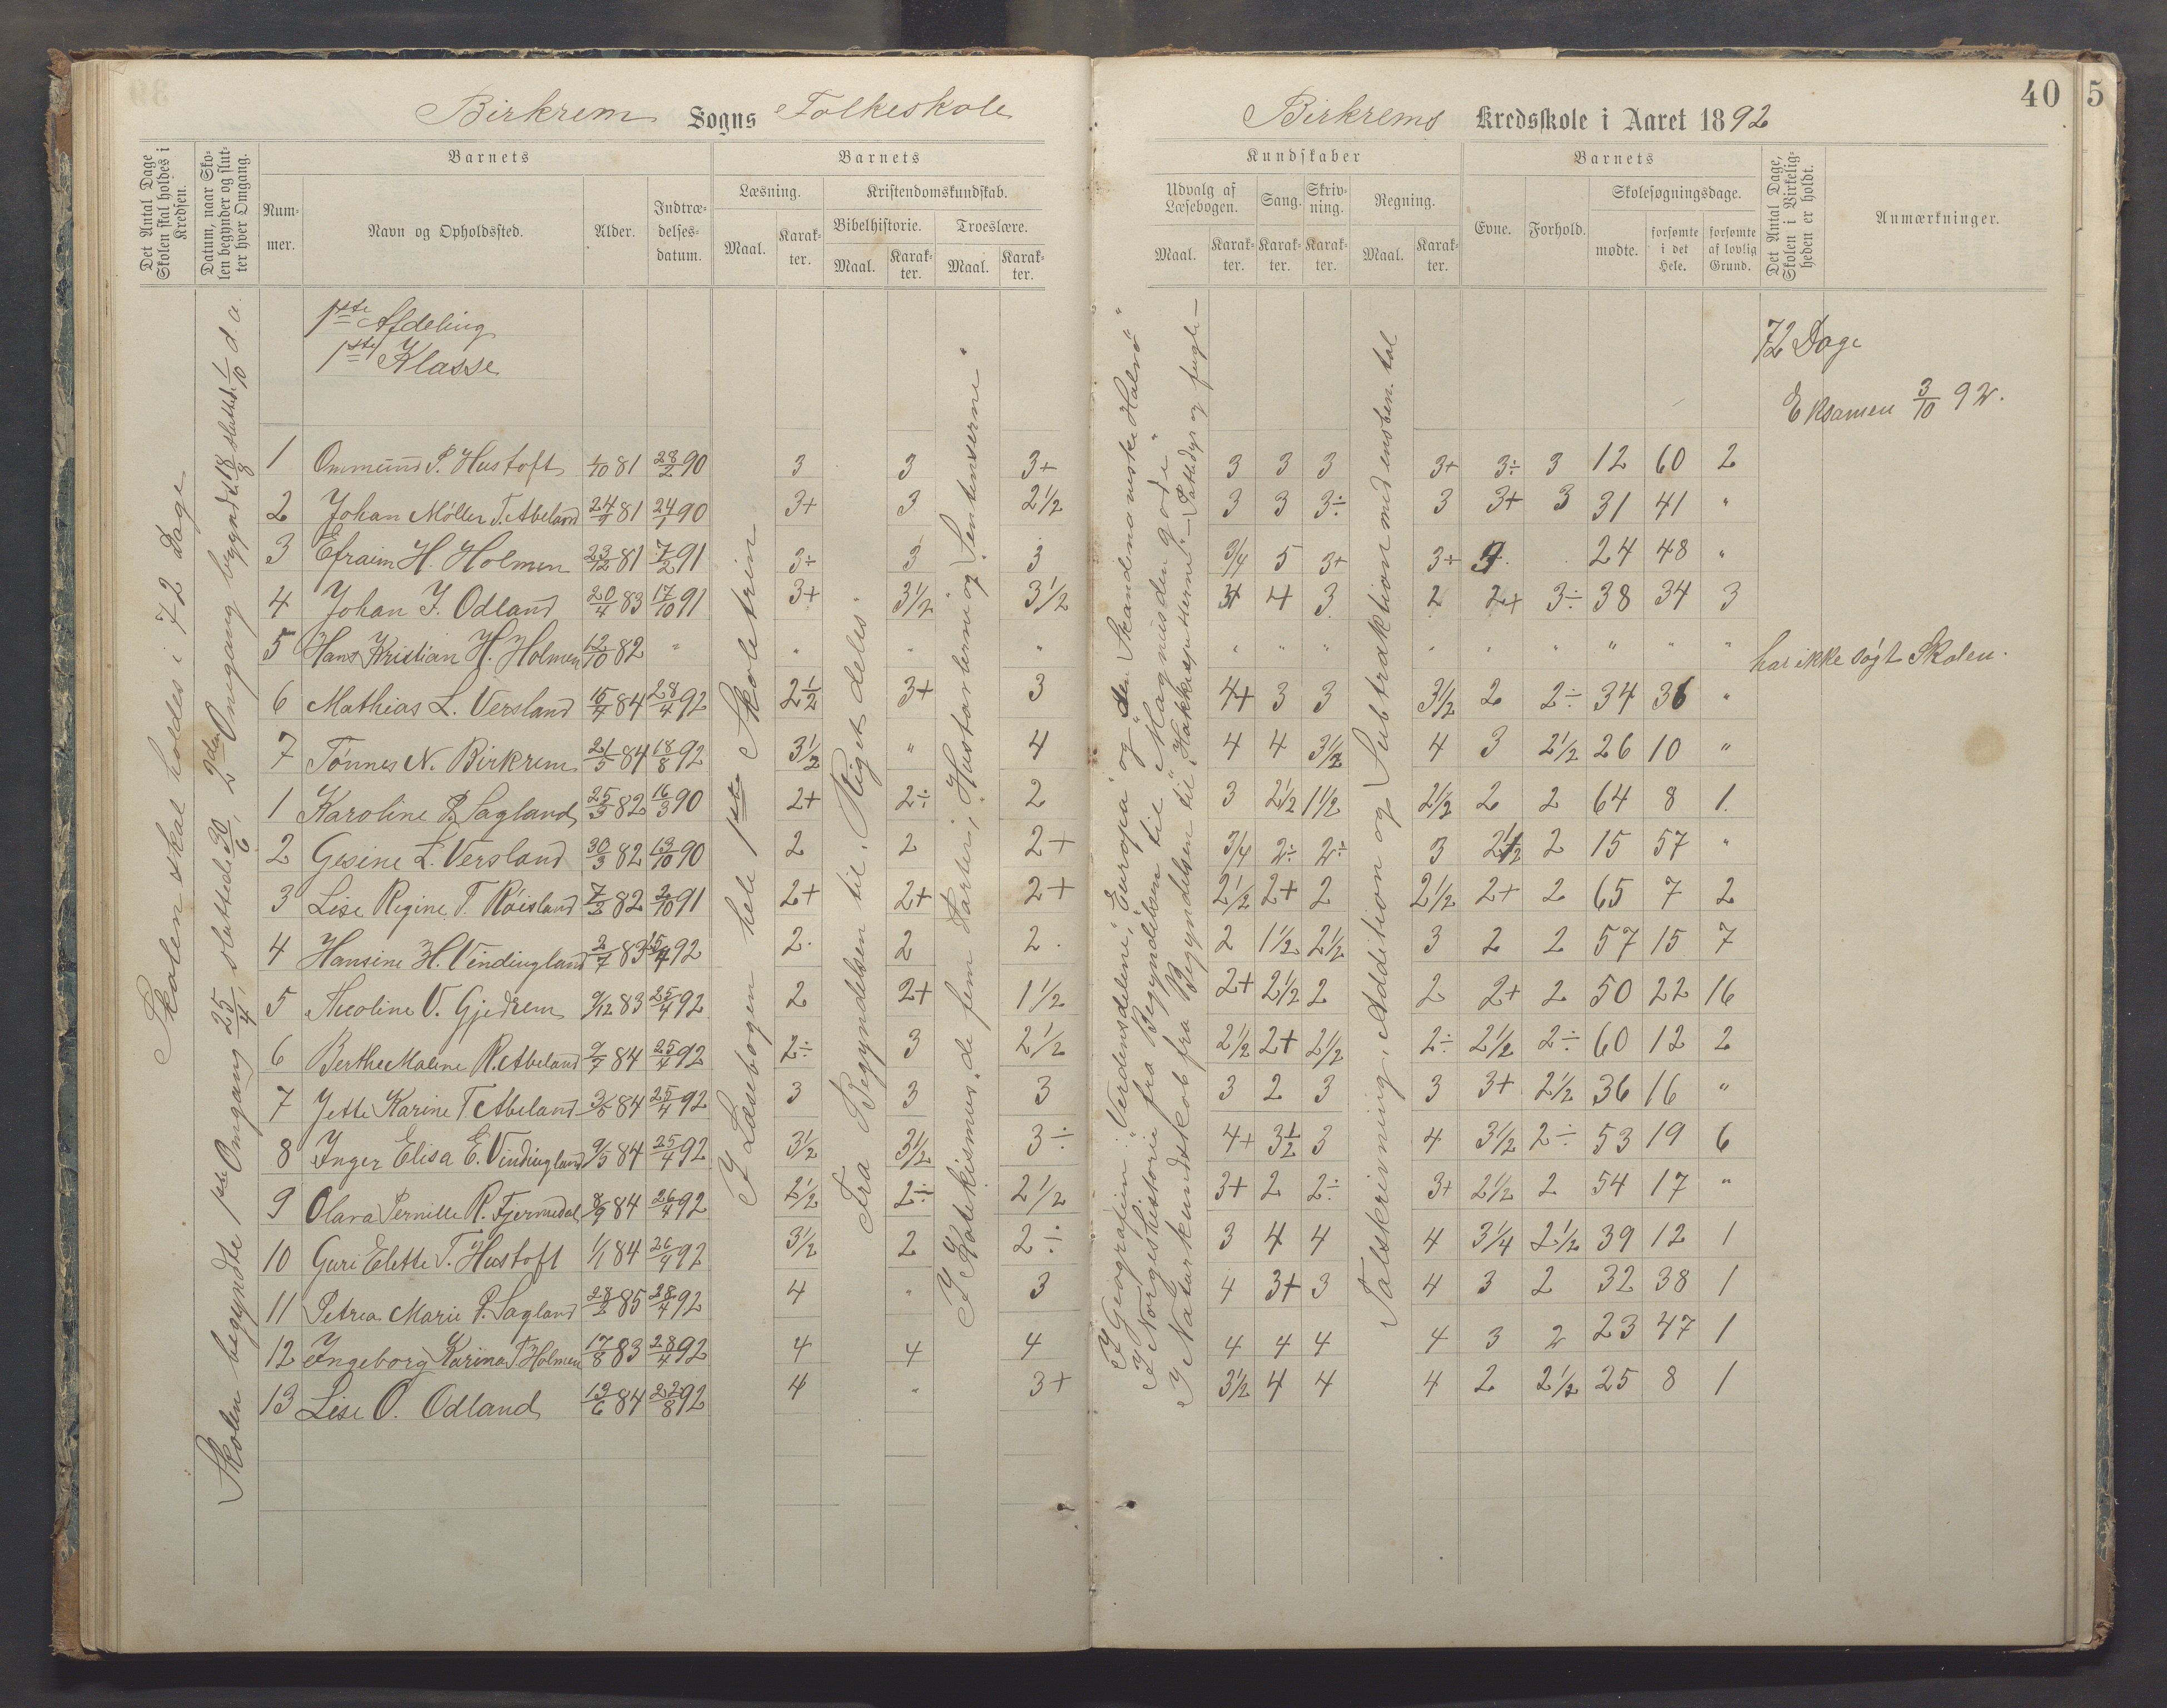 Birkrem Sogns Folkeskole
Det Antal Dage Skolen skal holdes i Kredsen.
Datum, naar Skolen begynder og slutter hver Omgang.
Barnets
Nummer.
Navn og Opholdssted.
Alder.
Indtrædelsesdatum.
Barnets
Læsning.
Maal.
Karakter.
Kristendomskundskab.
Bibelhistorie.
Maal.
Karakter.
Troeslære.
Maal.
Karakter.
Skolen skal holdes i 72 Dage
Skolen begyndte 1ste Omgang 25/4, sluttede 30/6, 2den Omgang begyndt 18/8 sluttede 1/10 d. a.
1ste Afdeling
1ste Klasse
I Læsebogen hele 1ste Skoletrin
Fra Begyndelsen til "Riget deles".
I Katekismus: de fem Parter, "Hustavlerne" og "Sentenserne"
1 Ommund P. Hustoft 1/10 81 28/2 90 3 3 3+
2 Johan Møller T. Abeland 24/9 81 24/1 90 3+ 3 2 1/2
3 Efraim H. Holmen 23/12 81 7/2 91 3÷ 3 3
4 Johan J. Odland 20/4 83 17/10 91 3+ 3 1/2 3 1/2
5 Hans Kristian H. Holmen 12/10 82 " " " "
6 Mathias L. Versland 15/7 84 28/4 92 2 1/2 3+ 3
7 Tønnes N. Birkrem 21/5 84 18/8 92 3 1/2 " 4
1 Karoline P. Sagland 25/3 82 16/3 90 2+ 2÷ 2
2 Gesine L. Versland 30/3 82 13/10 90 2 2 2+
3 Lise Regine T. Røisland 7/3 82 2/10 91 2+ 2+ 2+
4 Hansine H. Vindingland 2/7 83 25/4 92 2. 2 2.
5 Nicoline V. Gjedrem 9/12 83 25/4 92 2 2+ 1 1/2
6 Berthe Maline R. Abeland 9/7 84 25/4 92 2÷ 3 2 1/2
7 Jette Karine T. Abeland 3/5 84 25/4 92 3 3 3
8 Inger Elisa E. Vindingland 9/5 84 25/4 92 3 1/2 3 1/2 3÷
9 Olava Pernille R. Fjermedal 8/9 84 26/4 92 2 1/2 2÷ 2 1/2
10 Guri Elette T. Hustoft 1/1 84 26/4 92 3 1/2 2 2÷
11 Petrea Marie P. Sagland 28/2 85 28/4 92 4 " 3
12 Ingeborg Karina T. Holmen 17/8 83 28/4 92 4 4 4
13 Lise O. Odland 13/6 84 22/8 92 4 " 3+
40
5
Birkrems Kredsskole i Aaret 1892
Kundskaber
Udvalg af Læsebogen.
Maal.
Karakter.
Sang.
Karakter.
Skrivning.
Karakter.
Regning.
Maal.
Karakter.
Barnets
Evne.
Forhold.
Skolesøgningsdage.
mødte.
forsømte i det Hele.
forsømte af lovlig Grund.
Det Antal Dage, Skolen i Virkeligheden er holdt.
Anmærkninger.
I Geografien: "Verdensdelene", "Europa" og "den Skandinaviske Halvø"
I Norgeshistorie fra Begyndelsen til "Magnus den gode"
I Naturkundskab fra Begyndelsen til "Hakkespetterne" — Pattedyr og fugle —
Talskrivning, Addition og Subtraktion med ensben. tal
72 Dage
Eksamen 3/10 92.
3 3 3 3+ 3÷ 3 12 60 2
3 3 3÷ 3 3+ 3 31 41 "
3/4 5 3+ 3÷ 24 48 "
3+ 4 3 2 2+ 3÷ 38 34 3
" " " " " " " " " har ikke søgt Skolen.
4+ 3 3 3 1/2 2 2÷ 34 36 "
4 4 3 1/2 4 3 2 1/2 26 10 "
3 2 1/2 1 1/2 2 1/2 2 2 64 8 1.
3/4 2÷ 2÷ 3 2 1/2 2 15 57 "
2 1/2 2+ 2 2 1/2 2+ 2 65 7 2
2 1 1/2 2 1/2 3 2 2 57 15 7
2+ 2 1/2 2 2 2+ 2 50 22 16
2 1/2 2+ 2 1/2 2÷ 2 1/2 2÷ 60 12 2
3 2 3 3 3+ 2 1/2 36 16 "
4+ 3 1/2 3 4 3 1/2 2÷ 53 19 6
3+ 2 2÷ 3+ 2 1/2 2 54 17 "
3 4 4 4 3 1/4 2 1/2 39 12 1
4 3+ 3 4 3 2 32 38 1
4 4 4 4 3 2 23 47 1
3 1/2 4 4 4 2 2 1/2 25 8 1